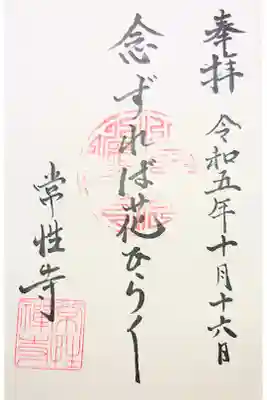 奉拝 令和五年十月十六日
念ずれば花ひらく
常性寺